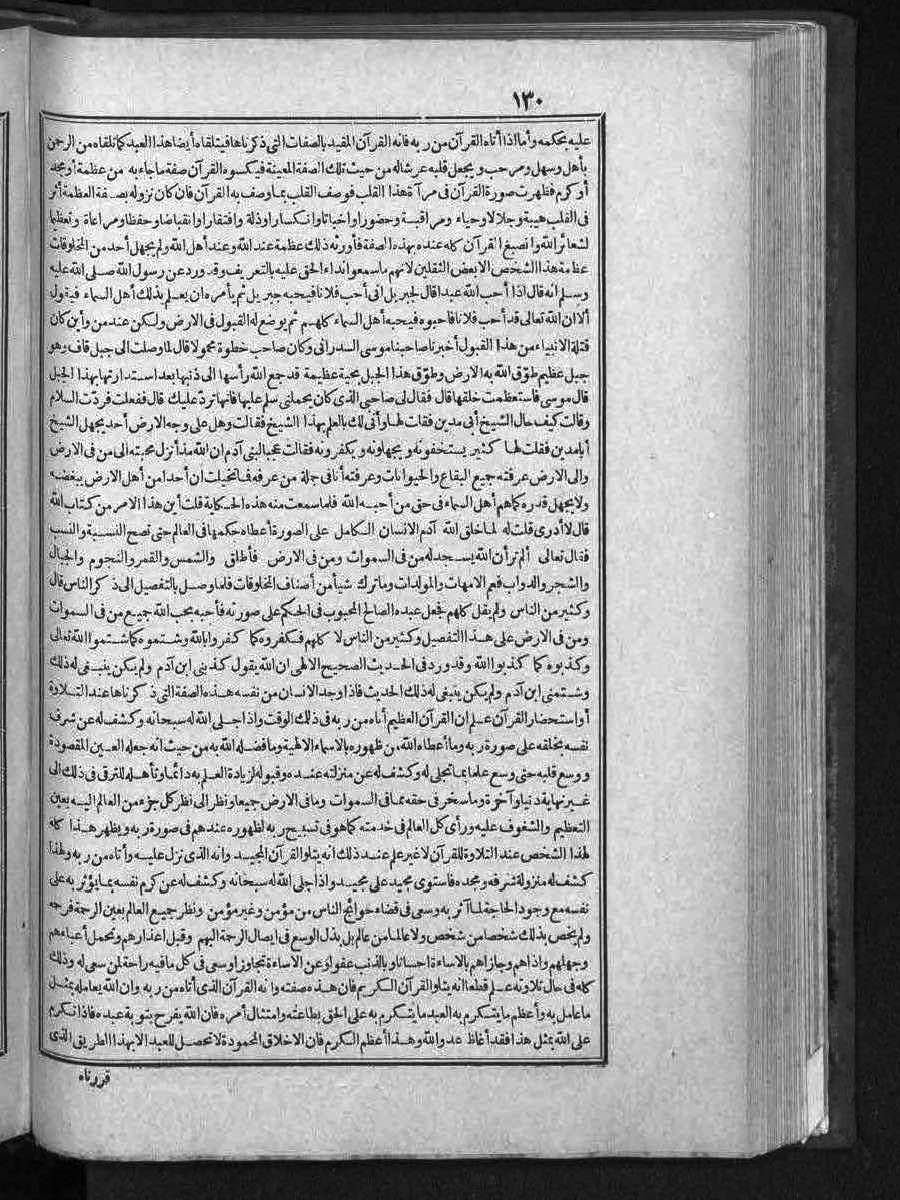 ١٣٠
عليه بحكمه وأما اذا أتاه القرآن من ربه فانه القرآن المقيد بالصفات التى ذكرناها فيتلقاه أيضا هذا العبد كما تلقاه من الرحمن
بأهل وسهل ومرحب ويجعل قلبه عرشا له من حيث تلك الصفة المعينة فيكسوه القرآن صفة ما جاء به من عظمة أو مجد
أو كرم فظهرت صورة القرآن فى مرآة هذا القلب فوصف القلب بما وصف به القرآن فان كان نزوله بصفة العظمة أثر
فى القلب هيبة وجلالا وحياء ومراقبة وحضورا واخباتا وانكسارا وذلة وافتقارا وانقباضا وحفظا ومراعاة وتعظيما
لشعائر الله وانصبغ القرآن كله عنده بهذه الصفة فأورثه ذلك عظمة عند الله وعند أهل الله ولم يجهل أحد من المخلوقات
عظمة هذا الشخص الا بعض الثقلين لانهم ما سمعوا نداء الحق عليه بالتعريف وقد ورد عن رسول الله صلى الله عليه
وسلم انه قال اذا أحب الله عبدا قال لجبريل انى أحب فلانا فيحبه جبريل ثم يأمره ان يعلم بذلك أهل السماء فيقول
ألا ان الله تعالى قد أحب فلانا فاحبوه فيحبه أهل السماء كلهم ثم يوضع له القبول فى الارض ولكن عند من وأين كان
قتلة الانبياء من هذا القبول أخبرنا صاحبنا موسى السدرانى وكان صاحب خطوة محمولا قال لما وصلت الى جبل قاف وهو
جبل عظيم طوّق الله به الارض وطوّق هذا الجبل بحية عظيمة قد جمع الله رأسها الى ذنبها بعد استدارتها بهذا الجبل
قال موسى فاستعظمت خلقها قال فقال لى صاحبى الذى كان يحملنى سلم عليها فانها تردّ عليك قال ففعلت فردّت السلام
وقالت كيف حال الشيخ أبى مدين فقلت لها وأنى لك بالعلم بهذا الشيخ فقالت وهل على وجه الارض أحد يجهل الشيخ
أبا مدين فقلت لها كثير يستخفونه ويجهلونه ويكفرونه فقالت عجبا لبنى آدم ان الله مذ أنزل محبته الى من فى الارض
والى الارض عرفته جميع البقاع والحيوانات وعرفته أنا فى جملة من عرفه فما تخيلت ان أحدا من أهل الارض يبغضه
ولا يجهل قدره كما هم أهل السماء فى حق من أحبه الله فلما سمعت منه هذه الحكاية قلت أين هذا الامر من كتاب الله
قال لا أدرى قلت له لما خلق الله آدم الانسان الكامل على الصورة أعطاه حكمها فى العالم حتى تصح النسبة والنسب
فقال تعالى ألم تر أن الله يسجد له من فى السموات ومن فى الارض فأطلق والشمس والقمر والنجوم والجبال
والشجر والدواب فعم الامهات والمولدات وما ترك شيأ من أصناف المخلوقات فلما وصل بالتفصيل الى ذكر الناس قال
وكثير من الناس ولم يقل كلهم فجعل عبده الصالح المحبوب فى الحكم على صورته فأحبه بحب الله جميع من فى السموات
ومن فى الارض على هذا التفصيل وكثير من الناس لا كلهم فكفروه كما كفروا بالله وشتموه كما شتموا الله تعالى
وكذبوه كما كذبوا الله وقد ورد فى الحديث الصحيح الالهى ان الله يقول كذبنى ابن آدم ولم يكن ينبغى له ذلك
وشتمنى ابن آدم ولم يكن ينبغى له ذلك الحديث فاذا وجد الانسان من نفسه هذه الصفة التى ذكرناها عند التلاوة
أو استحضار القرآن علم ان القرآن العظيم أتاه من ربه فى ذلك الوقت واذا جلى الله له سبحانه وكشف له عن شرف
نفسه بخلقه على صورة ربه وما أعطاه الله من ظهوره بالاسماء الالهية وما فضله الله به من حيث انه جعله العين المقصودة
ووسع قلبه حتى وسع علما بما تجلى له وكشف له عن منزلته عنده وقبوله لزيادة العلم به دائما وتأهله للترقى فى ذلك الى
غير نهاية دنيا وآخرة وما سخر فى حقه مما فى السموات وما فى الارض جميعا ونظر الى نظر كل جزء من العالم اليه بعين
التعظيم والشفوف عليه ورأى كل العالم فى خدمته كما هو فى تسبيح ربه لظهوره عندهم فى صورة ربه ويظهر هذا كله
لهذا الشخص عند التلاوة للقرآن لا غير علم عند ذلك انه يتلو القرآن المجيد وانه الذى نزل عليه وأتاه من ربه ولهذا
كشف له منزولة شرفه ومجده فاستوى مجيد على مجيد واذا جلى الله له سبحانه وكشف له عن كرم نفسه بما يؤثر به على
نفسه مع وجود الحاجة لما آثر به وسعى فى قضاء حوائج الناس من مؤمن وغير مؤمن ونظر جميع العالم بعين الرحمة فرحمه
ولم يخص بذلك شخصا من شخص ولا عالما من عالم بل بذل الوسع فى ايصال الرحمة اليهم وقبل اعذارهم وتحمل أعباءهم
وجهلهم واذاهم وجازاهم بالاساءة احسانا وبالذنب عفوا وعن الاساءة تجاوزا وسعى فى كل ما فيه راحة لمن سعى له وذلك
كله فى حال تلاوته علم قطعا انه يتلو القرآن الكريم فان هذه صفته وانه القرآن الذى أتاه من ربه وان الله يعامله بمثل
ما عامل به وأعظم ما يتكرم به العبد ما يتكرم به على الحق بطاعته وامتثال أمره فان الله يفرح بتوبة عبده فاذا تكرم
على الله بمثل هذا فقد أغاظ عدو الله وهذا أعظم الكرم فان الاخلاق المحمودة لا تحصل للعبد الا بهذا الطريق الذى
قررناه